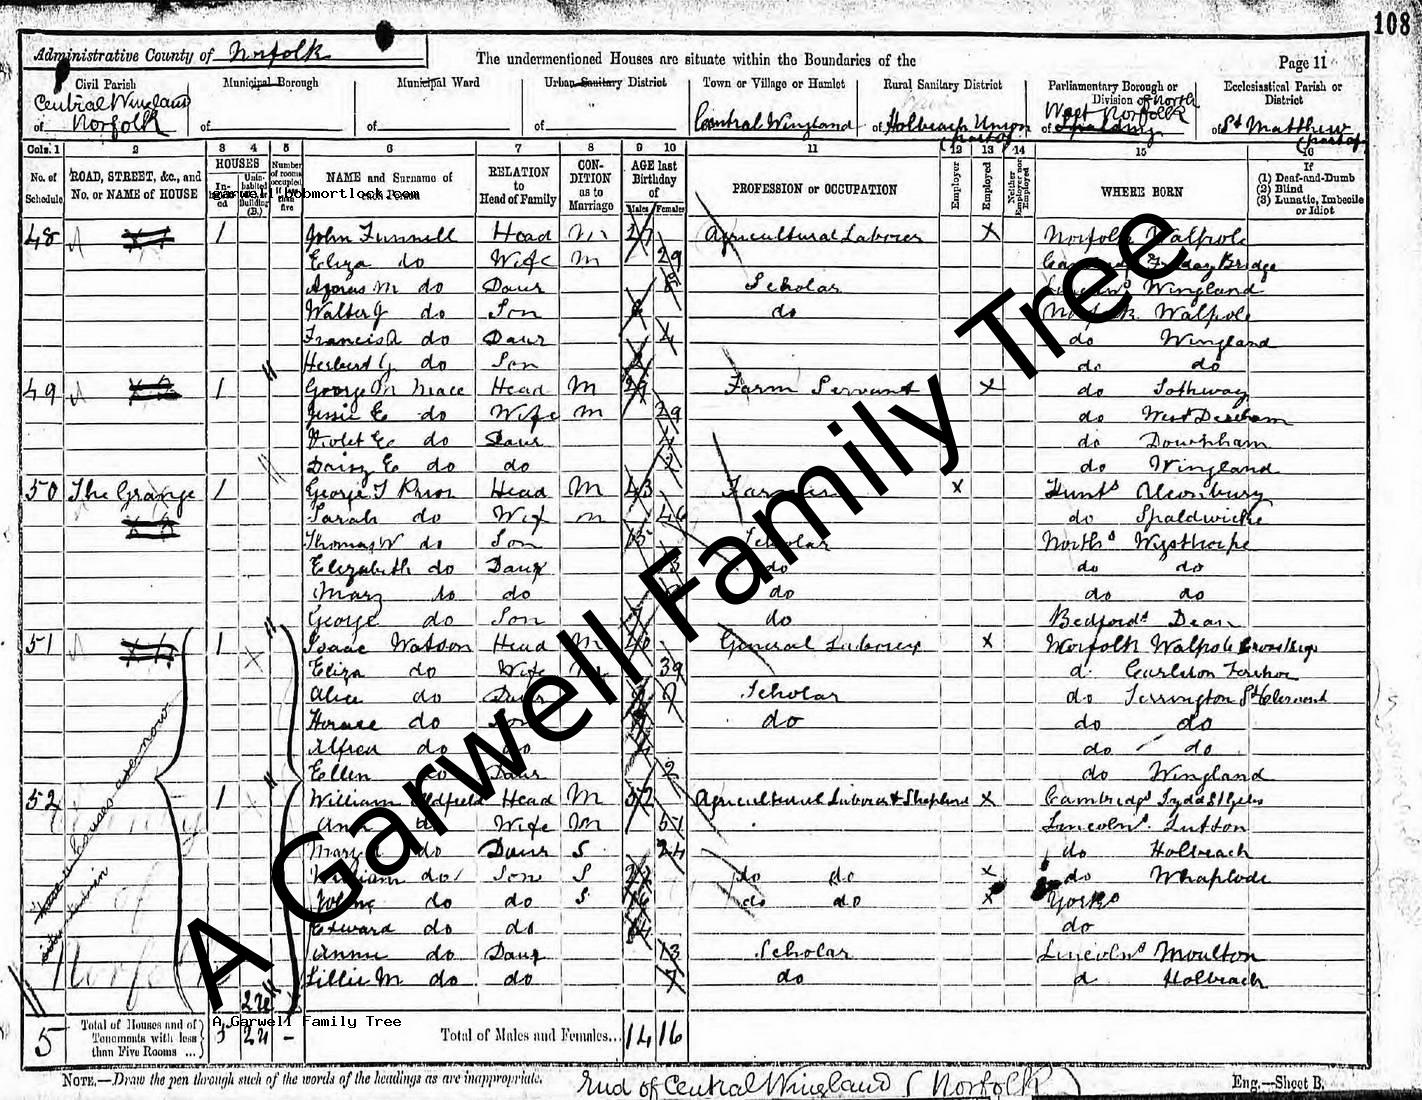 108
Administrative County of Norfolk
The undermentioned Houses are situate within the Boundaries of the
Page 11
Civil Parish
Municipal Borough
Municipal Ward
Urban Sanitary District
Town or Village or Hamlet
Rural Sanitary District
Parliamentary Borough or Division of North
Ecclesiastical Parish or District
Central Wingland
West Norfolk
of Norfolk
of
of
of
Central Wingland
of Holbeach Union (part of)
of Spalding
of St Matthew (part of)
Cols. 1 2 3 4 5 6 7 8 9 10 11 12 13 14 15 16
No. of Schedule
ROAD, STREET, &c., and No. or NAME of HOUSE
HOUSES
In-habited
Unin-habited Building (B.)
Number of rooms occupied if less than five
NAME and Surname of each Person
RELATION to Head of Family
CON-DITION as to Marriage
AGE last Birthday of
Males Females
PROFESSION or OCCUPATION
Employer
Employed
Neither Employer nor Employed
WHERE BORN
If
(1) Deaf-and-Dumb
(2) Blind
(3) Lunatic, Imbecile or Idiot
garwell.bobmortlock.com
48 1 John Funnell Head M 27 Agricultural Laborer X Norfolk Walpole
Eliza do Wife M 29 Friday Bridge
do Daur 8 Scholar Wingland
Walter J do Son 6 do Norfolk Walpole
Francis A do Daur 4 do Wingland
Herbert G do Son 2 do do
49 1 George M Mace Head M 29 Farm Servant X do
Jessie E do Wife M 29 do West Dereham
Violet do Daur do Downham
Daisy E do do 2 do Wingland
50 The Grange 1 George T Head M 43 Farmer X Hunts
Sarah do Wife M 46 do Spaldwick
Thomas W do Son 15 Scholar Norths
Elizabeth do Daur 13 do do do
Mary do do do do do
George do Son 7 do Bedfords Dean
51 1 Isaac Watson Head M 40 General Laborer X Norfolk Walpole
Eliza do Wife M 39 d. Carleton
Alice do Daur 9 Scholar do Terrington St Clement
Horace do Son do do do
Alfred do do do do
Ellen do Daur 2 do Wingland
52 1 William Oldfield Head M 52 Agricultural Laborer & Shepherd X Cambridge Tydd St Giles
Ann do Wife M 51 Lincolns. Lutton
do Daur S. 24 do Holbeach
William do Son S 22 do do X do Whaplode
do do S 16 do do X Yorks
Edward do do 14 do
Annie do Daur 13 Scholar Lincolns Moulton
Lillie M do do 7 do d Holbeach
these houses are now
A Garwell Family Tree
A Garwell Family Tree
5
Total of Houses and of Tenements with less than Five Rooms ...
5 -
Total of Males and Females...
14 16
NOTE.—Draw the pen through such of the words of the headings as are inappropriate.
End of Central Wingland (Norfolk)
Eng.—Sheet B.